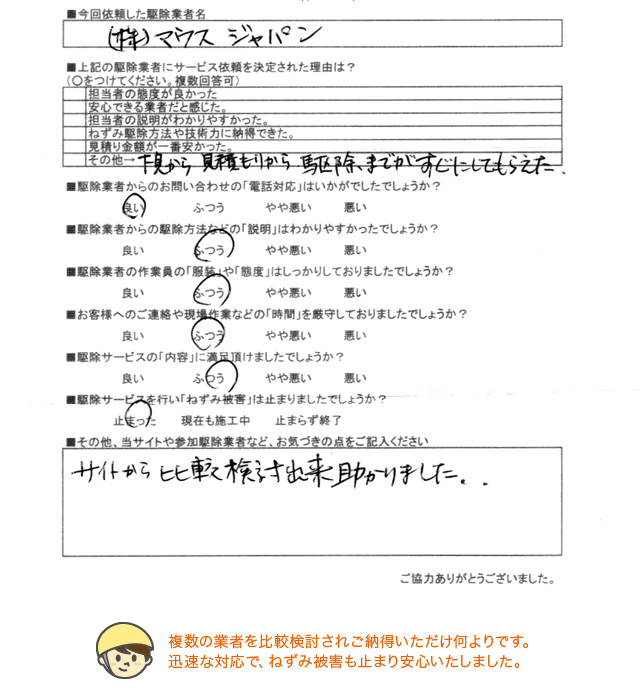 ■今回依頼した駆除業者名
(株)マウス ジャパン
■上記の駆除業者にサービス依頼を決定された理由は？
(〇をつけてください。複数回答可)
担当者の態度が良かった
安心できる業者だと感じた。
担当者の説明がわかりやすかった。
ねずみ駆除方法や技術力に納得できた。
見積り金額が一番安かった。
その他→下見から見積もりから駆除までがすぐにしてもらえた.
■駆除業者からのお問い合わせの「電話対応」はいかがでしたでしょうか？
良い ふつう やや悪い 悪い
■駆除業者からの駆除方法などの「説明」はわかりやすかったでしょうか？
良い ふつう やや悪い 悪い
■駆除業者の作業員の「服装」や「態度」はしっかりしておりましたでしょうか？
良い ふつう やや悪い 悪い
■お客様へのご連絡や現場作業などの「時間」を厳守しておりましたでしょうか？
良い ふつう やや悪い 悪い
■駆除サービスの「内容」に満足頂けましたでしょうか？
良い ふつう やや悪い 悪い
■駆除サービスを行い「ねずみ被害」は止まりましたでしょうか？
止まった 現在も施工中 止まらず終了
■その他、当サイトや参加駆除業者など、お気づきの点をご記入ください
サイトから比較検討出来助かりました..
ご協力ありがとうございました。
複数の業者を比較検討されご納得いただけ何よりです。
迅速な対応で、ねずみ被害も止まり安心いたしました。